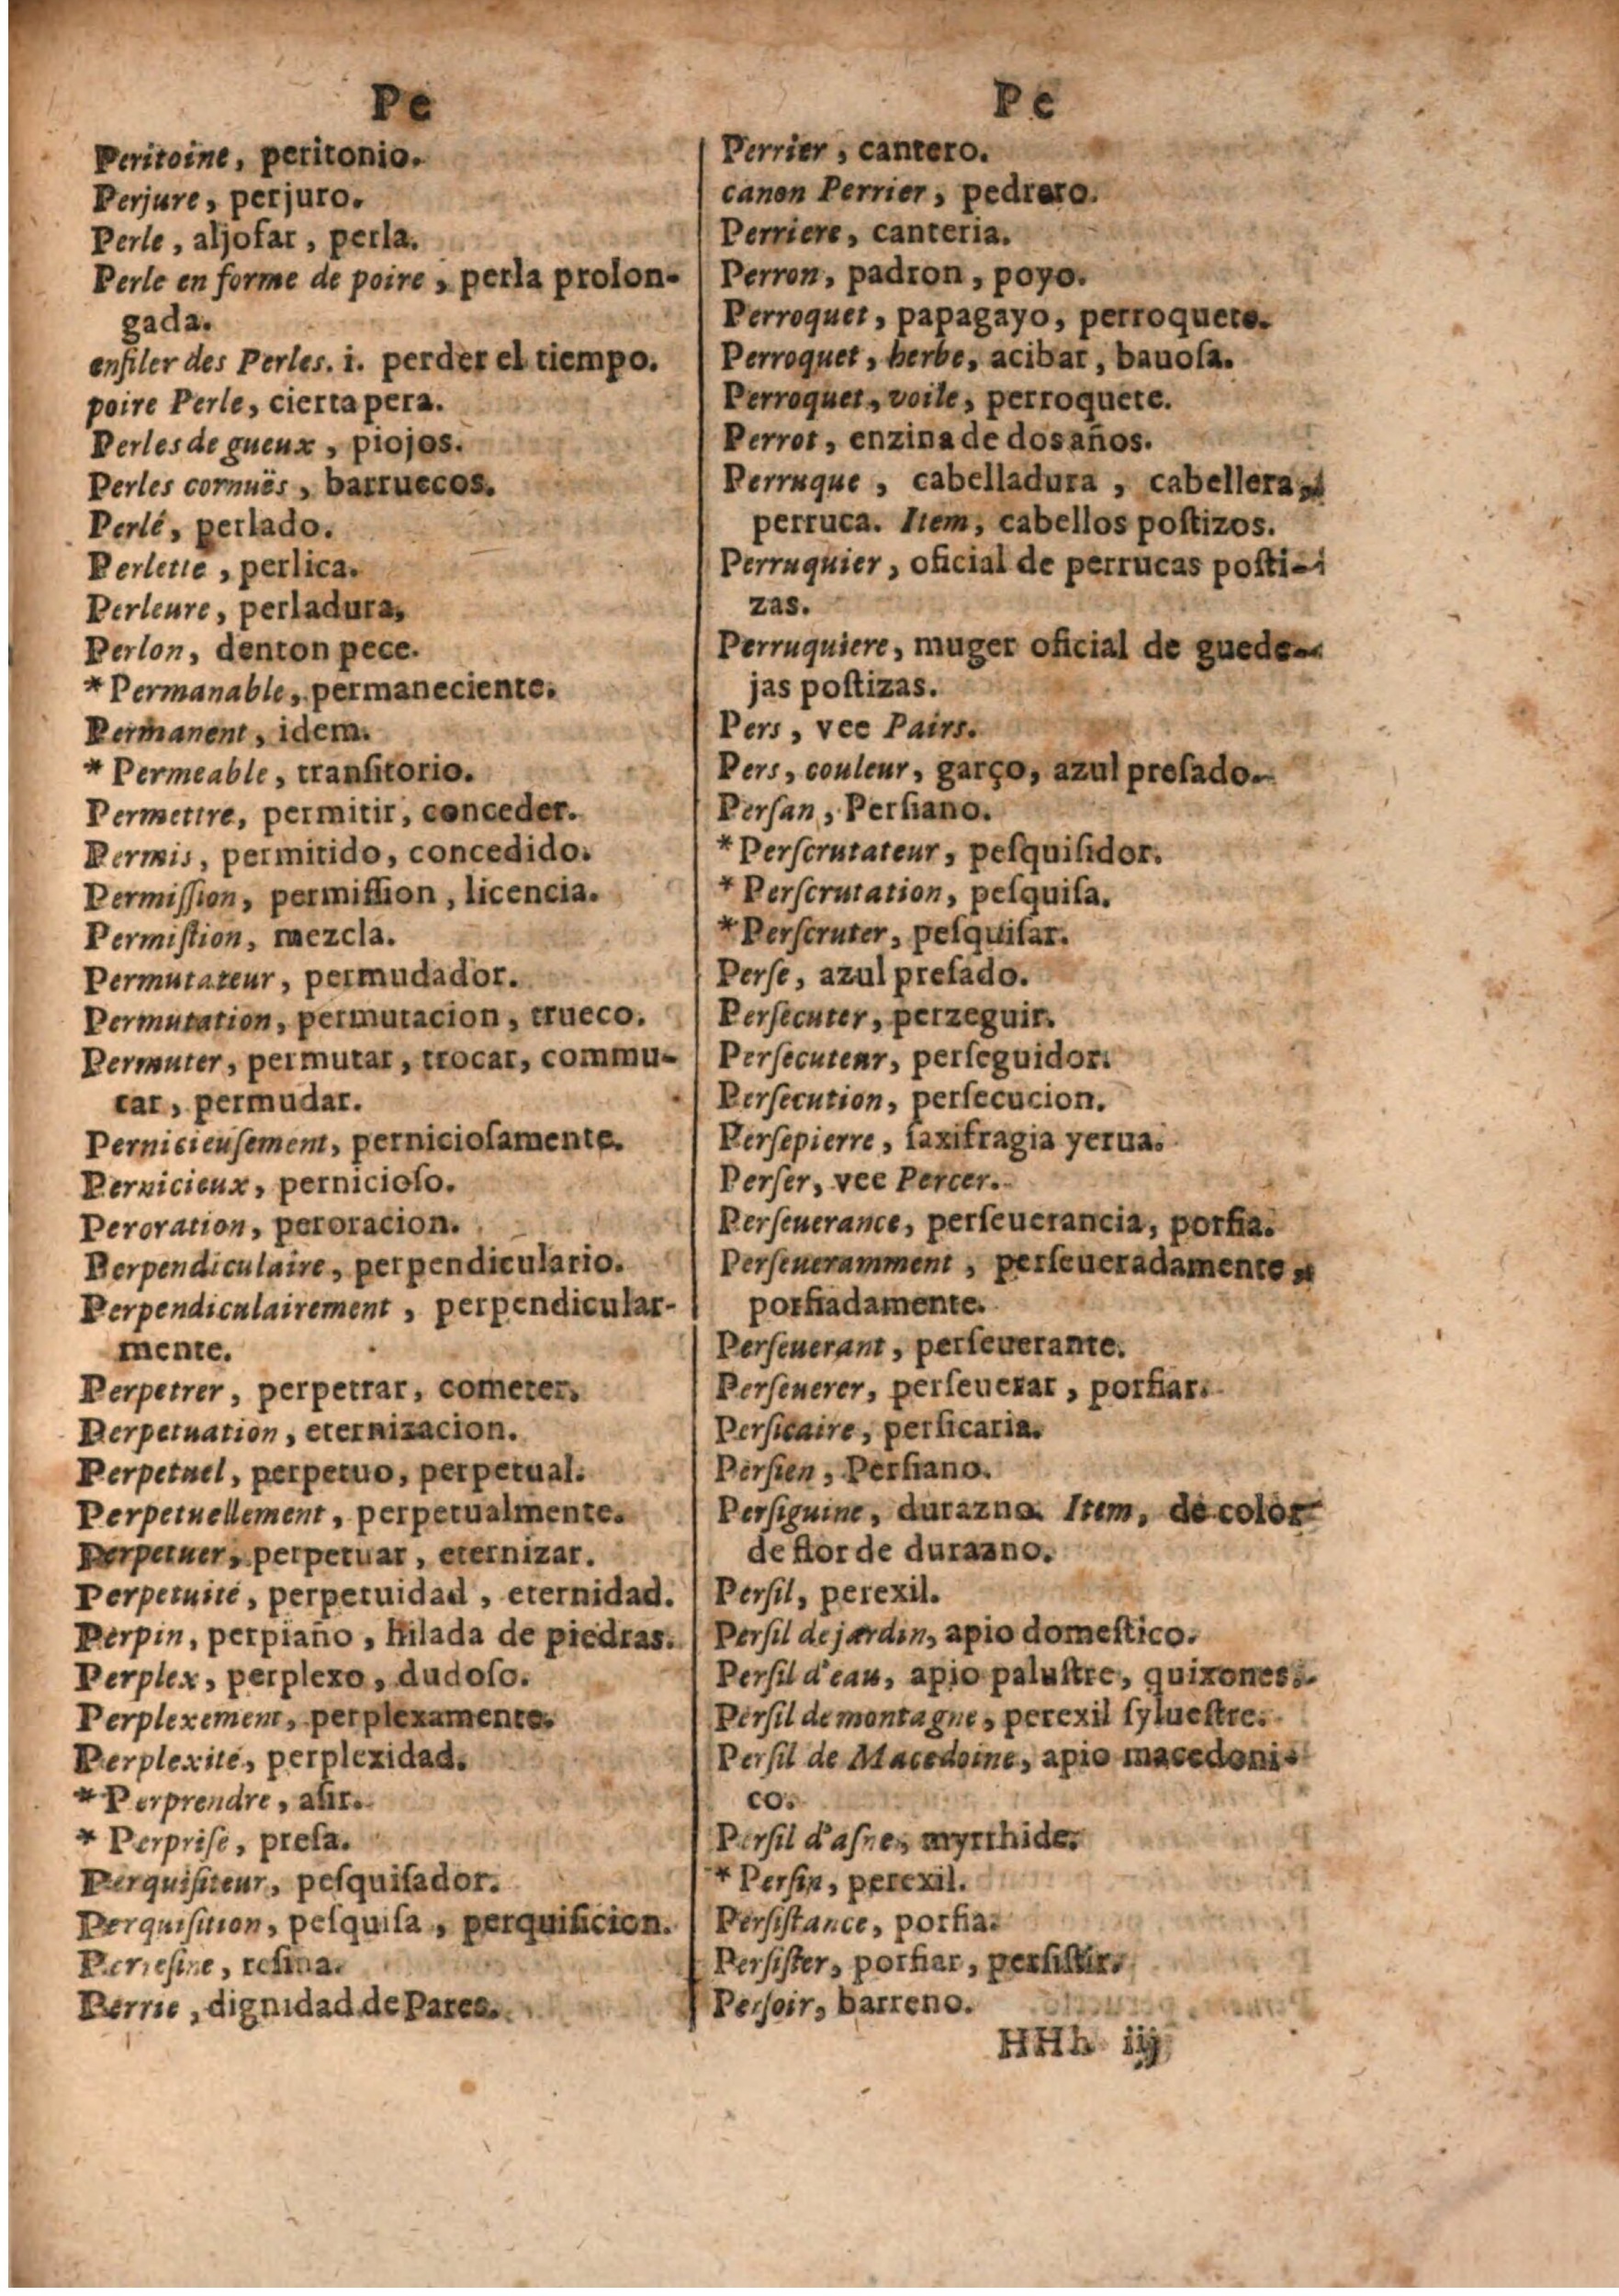 Pe
Peritoine, peritonio.
Perjure, perjuro.
Perle, aljofar, perla.
Perle en forme de poire, perla prolon-
gada.
enfiler des Perles. i. perder el tiempo.
poire Perle, cierta pera.
Perles de gueux, piojos.
Perles cornuës, barruecos.
Perlé, perlado.
Perlette, perlica.
Perleure, perladura.
Perlon, denton pece.
*Permanable, permaneciente.
Permanent, idem.
* Permeable, tranſitorio.
Permettre, permitir, conceder.
Permis, permitido, concedido.
Permiſſion, permiſſion, licencia.
Permiſtion, mezcla.
Permutateur, permudador.
Permutation, permutacion, trueco.
Permuter, permutar, trocar, commu-
tar, permudar.
Pernicieuſement, pernicioſamente.
Pernicieux, pernicioſo.
Peroration, peroracion.
Perpendiculaire, perpendiculario.
Perpendiculairement, perpendicular-
mente.
Perpetrer, perpetrar, cometer.
Perpetuation, eternizacion.
Perpetuel, perpetuo, perpetual.
Perpetuellement, perpetualmente.
Perpetuer, perpetuar, eternizar.
Perpetuité, perpetuidad, eternidad.
Perpin, perpiaño, hilada de piedras.
Perplex, perplexo, dudoſo.
Perplexement, perplexamente.
Perplexité, perplexidad.
*Perprendre, aſir.
* Perpriſe, preſa.
Perquiſiteur, peſquiſador.
Perquiſition, peſquiſa, perquiſicion.
Perreſine, reſina.
Perrie, dignidad de Pares.
Pe
Perrier, cantero.
canon Perrier, pedrero.
Perriere, canteria.
Perron, padron, poyo.
Perroquet, papagayo, perroquete.
Perroquet, herbe, acibar, bauoſa.
Perroquet, voile, perroquete.
Perrot, enzina de dos años.
Perruque, cabelladura, cabellera,
perruca. Item, cabellos poſtizos.
Perruquier, oficial de perrucas poſti-
zas.
Perruquiere, muger oficial de guede-
jas poſtizas.
Pers, vee Pairs.
Pers, couleur, garço, azul preſado.
Perſan, Perſiano.
*Perſcrutateur, peſquiſidor.
*Perſcrutation, peſquiſa.
*Perſcruter, peſquiſar.
Perſe, azul preſado.
Perſecuter, perzeguir.
Perſecuteur, perſeguidor.
Perſecution, perſecucion.
Perſepierre, ſaxifragia yerua.
Perſer, vee Percer.
Perſeuerance, perſeuerancia, porfia.
Perſeueramment, perſeueradamente,
porfiadamente.
Perſeuerant, perſeuerante.
Perſeuerer, perſeuerar, porfiar.
Perſicaire, perſicaria.
Perſien, Perſiano.
Perſiguine, durazno. Item, de color
de flor de durazno.
Perſil, perexil.
Perſil de jardin, apio domeſtico.
Perſil d'eau, apio paluſtre, quixones.
Perſil de montagne, perexil ſylueſtre.
Perſil de Macedoine, apio macedoni-
co.
Perſil d'aſne, myrrhide.
*Perſin, perexil.
Perſiſtance, porfia.
Perſiſter, porfiar, perſiſtir.
Perſoir, barreno.
HHh iij